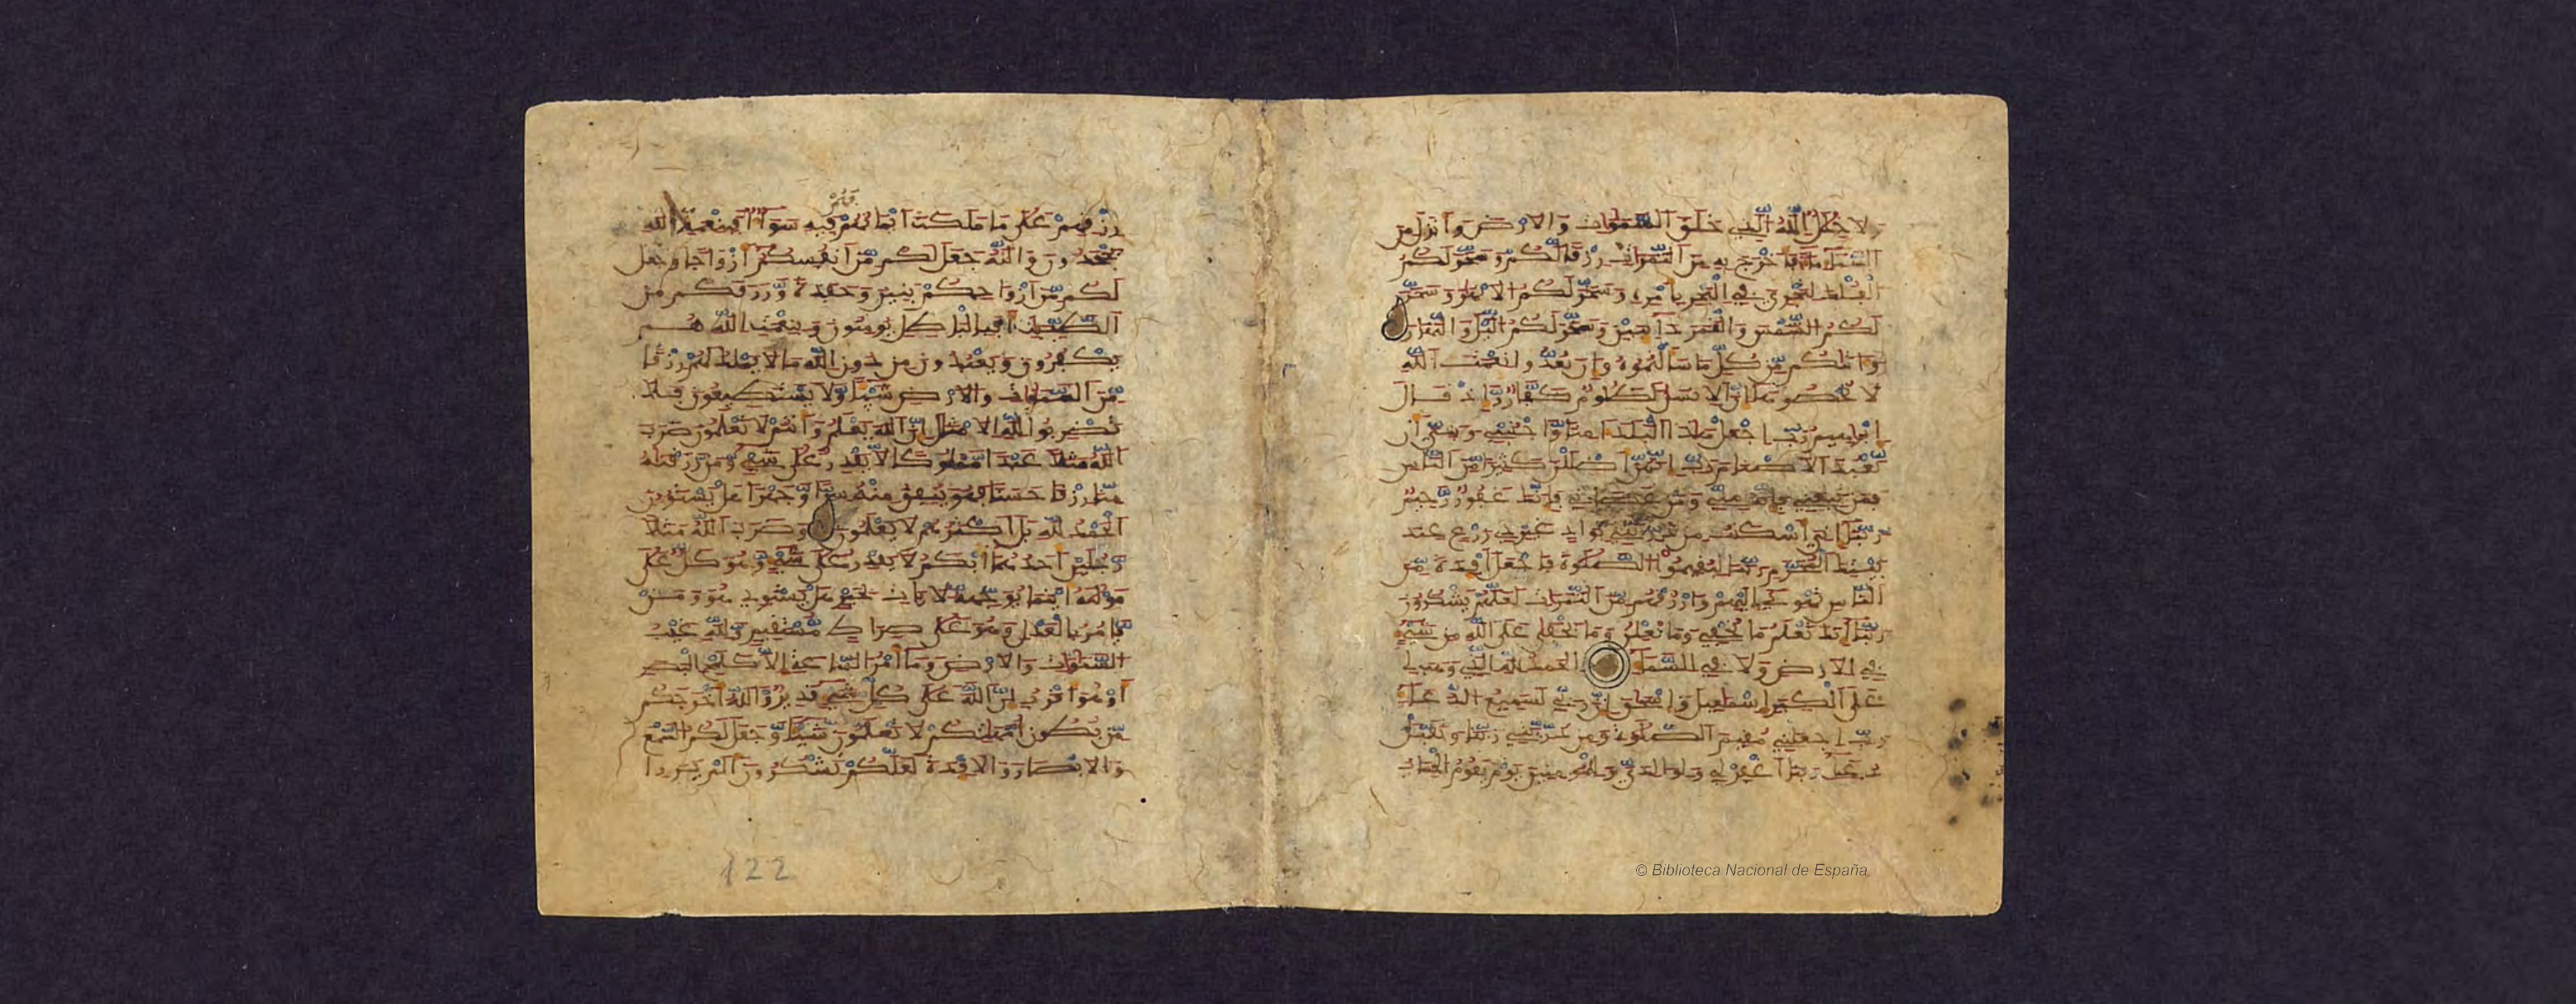 ولا خلل الله الذي خلق السموات والارض وانزل من
السماء ماء فاخرج به من الثمرات رزقا لكم وسخر لكم
الفلك لتجري في البحر بامره وسخر لكم الانهر وسخر
لكم الشمس والقمر دائبين وسخر لكم اليل والنهار
واتيكم من كل ما سالتموه وان تعدوا نعمت الله
لا تحصوها ان الانسن لظلوم كفار واذ قال
ابرهيم رب اجعل هذا البلد امنا واجنبني وبني ان
نعبد الاصنام رب انهن اضللن كثيرا من الناس
فمن تبعني فانه مني ومن عصاني فانك غفور رحيم
ربنا اني اسكنت من ذريتي بواد غير ذي زرع عند
بيتك المحرم ربنا ليقيموا الصلوة فاجعل افئدة من
الناس تهوي اليهم وارزقهم من الثمرات لعلهم يشكرون
ربنا انك تعلم ما نخفي وما نعلن وما يخفى على الله من شيء
في الارض ولا في السماء الحمد لله الذي وهب لي
على الكبر اسمعيل واسحق ان ربي لسميع الدعاء
رب اجعلني مقيم الصلوة ومن ذريتي ربنا وتقبل
دعاء ربنا اغفر لي ولوالدي وللمومنين يوم يقوم الحساب
رزقهم على ما ملكت ايمانهم فهم فيه سواء افبنعمة الله
يجحدون والله جعل لكم من انفسكم ازواجا وجعل
لكم من ازواجكم بنين وحفدة ورزقكم من
الطيبت افبالبطل يومنون وبنعمت الله هم
يكفرون ويعبدون من دون الله ما لا يملك لهم رزقا
من السموات والارض شيئا ولا يستطيعون فلا
تضربوا لله الامثال ان الله يعلم وانتم لا تعلمون ضرب
الله مثلا عبدا مملوكا لا يقدر على شيء ومن رزقنه
منا رزقا حسنا فهو ينفق منه سرا وجهرا هل يستون
الحمد لله بل اكثرهم لا يعلمون وضرب الله مثلا
رجلين احدهما ابكم لا يقدر على شيء وهو كل على
موليه اينما يوجهه لا يات بخير هل يستوي هو ومن
يامر بالعدل وهو على صراط مستقيم ولله غيب
السموات والارض وما امر الساعة الا كلمح البصر
او هو اقرب ان الله على كل شيء قدير والله اخرجكم
من بطون امهاتكم لا تعلمون شيئا وجعل لكم السمع
والابصار والافئدة لعلكم تشكرون الم يروا
122
© Biblioteca Nacional de España